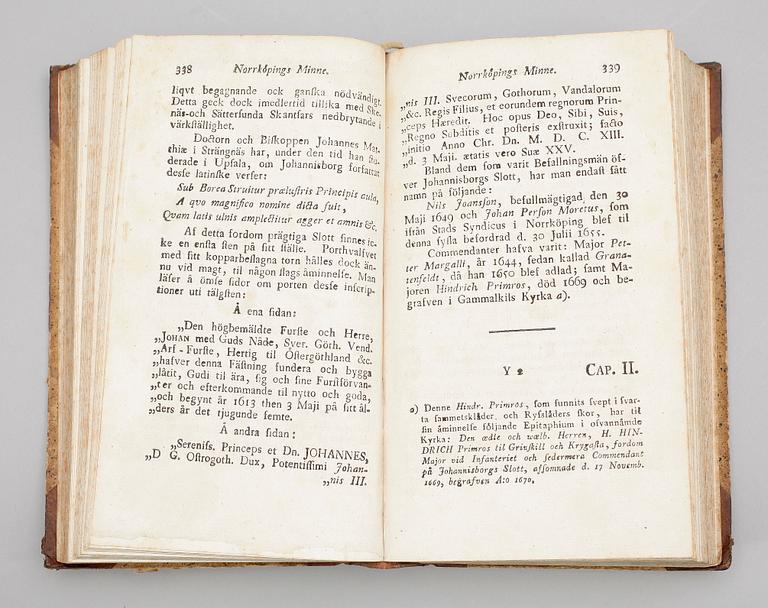 338 Norrköpings Minne.
liqvt begagnande ock ganſka nödvändigt.
Detta geck dock imedlertid tillika med Ske-
näs-och Sätterſunda Skantſars nedbrytande i
värkſtällighet.
Doctorn och Biſkoppen Johannes Mat-
thiæ i Strängnäs har, under den tid han ſtu-
derade i Upſala, om Johannisborg författat
desſe latinſke verſer:
Sub Borea Struitur præluſtris Principis aula,
A qvo magnifico nomine dicta fuit,
Qvam latis ulnis amplectitur agger et amnis &c.
Af detta fordom prägtiga Slott finnes ic-
ke en enſta ſten på ſitt ſtälle. Porthvalfvet
med ſitt kopparbeſlagna torn hålles dock än-
nu vid magt, til någon ſlags åminnelſe. Man
läſer å ömſe ſidor om porten desſe inſcrip-
tioner uti tälgſten:
Å ena ſidan:
„Den högbemäldte Furſte och Herre,
„JOHAN med Guds Nåde, Sver. Göth. Vend.
„Arf-Furſte, Hertig til Öſtergöthland &c.
„hafver denna Fäſtning fundera och bygga
„låtit, Gudi til ära, ſig och ſine Furſtförvan-
„ter och efterkommande til nytto och goda,
„och begynt år 1613 then 3 Maji på ſitt ål-
„ders år det tjugunde femte.
Å andra ſidan:
„Sereniſs. Princeps et Dn. JOHANNES,
„D G. Oſtrogoth. Dux, Potentiſſimi Johan-
„nis III.
Norrköpings Minne. 339
„nis III. Svecorum, Gothorum, Vandalorum
„&c. Regis Filius, et eorundem regnorum Prin-
„ceps Hæredit. Hoc opus Deo, Sibi, Suis,
„Regno Subditis et poſteris exſtruxit; facto
„initio Anno Chr. Dn. M. D. C. XIII.
„d. 3 Maji. ætatis vero Suæ XXV.
Bland dem ſom varit Befallningsmän öf-
ver Johannisborgs Slott, har man endaſt fått
namn på följande:
Nils Joansſon, befullmägtigad den 30
Maji 1649 och Johan Perſon Moretus, ſom
ifrån Stads Syndicus i Norrköping blef til
denna ſyſla befordrad d. 30 Julii 1655.
Commendanter hafva varit: Major Pet-
ter Margalli, år 1644, ſedan kallad Grana-
tenfeldt, då han 1650 blef adlad; ſamt Ma-
joren Hindrich Primros, död 1669 och be-
grafven i Gammalkils Kyrka a).
Y 2 CAP. II.
a) Denne Hindr. Primros, ſom funnits ſvept i ſvar-
ta ſammetskläder, och Ryſsläders ſkor, har til
ſin åminnelſe följande Epitaphium i ofvannämde
Kyrka: Den ædle och wælb. Herren, H. HIN-
DRICH Primros til Grinſkill och Krygaſta, fordom
Major vid Infanteriet och ſedermera Commendant
på Johannisborgs Slott, afſomnade d. 17 Novemb.
1669, begrafven A:o 1670.